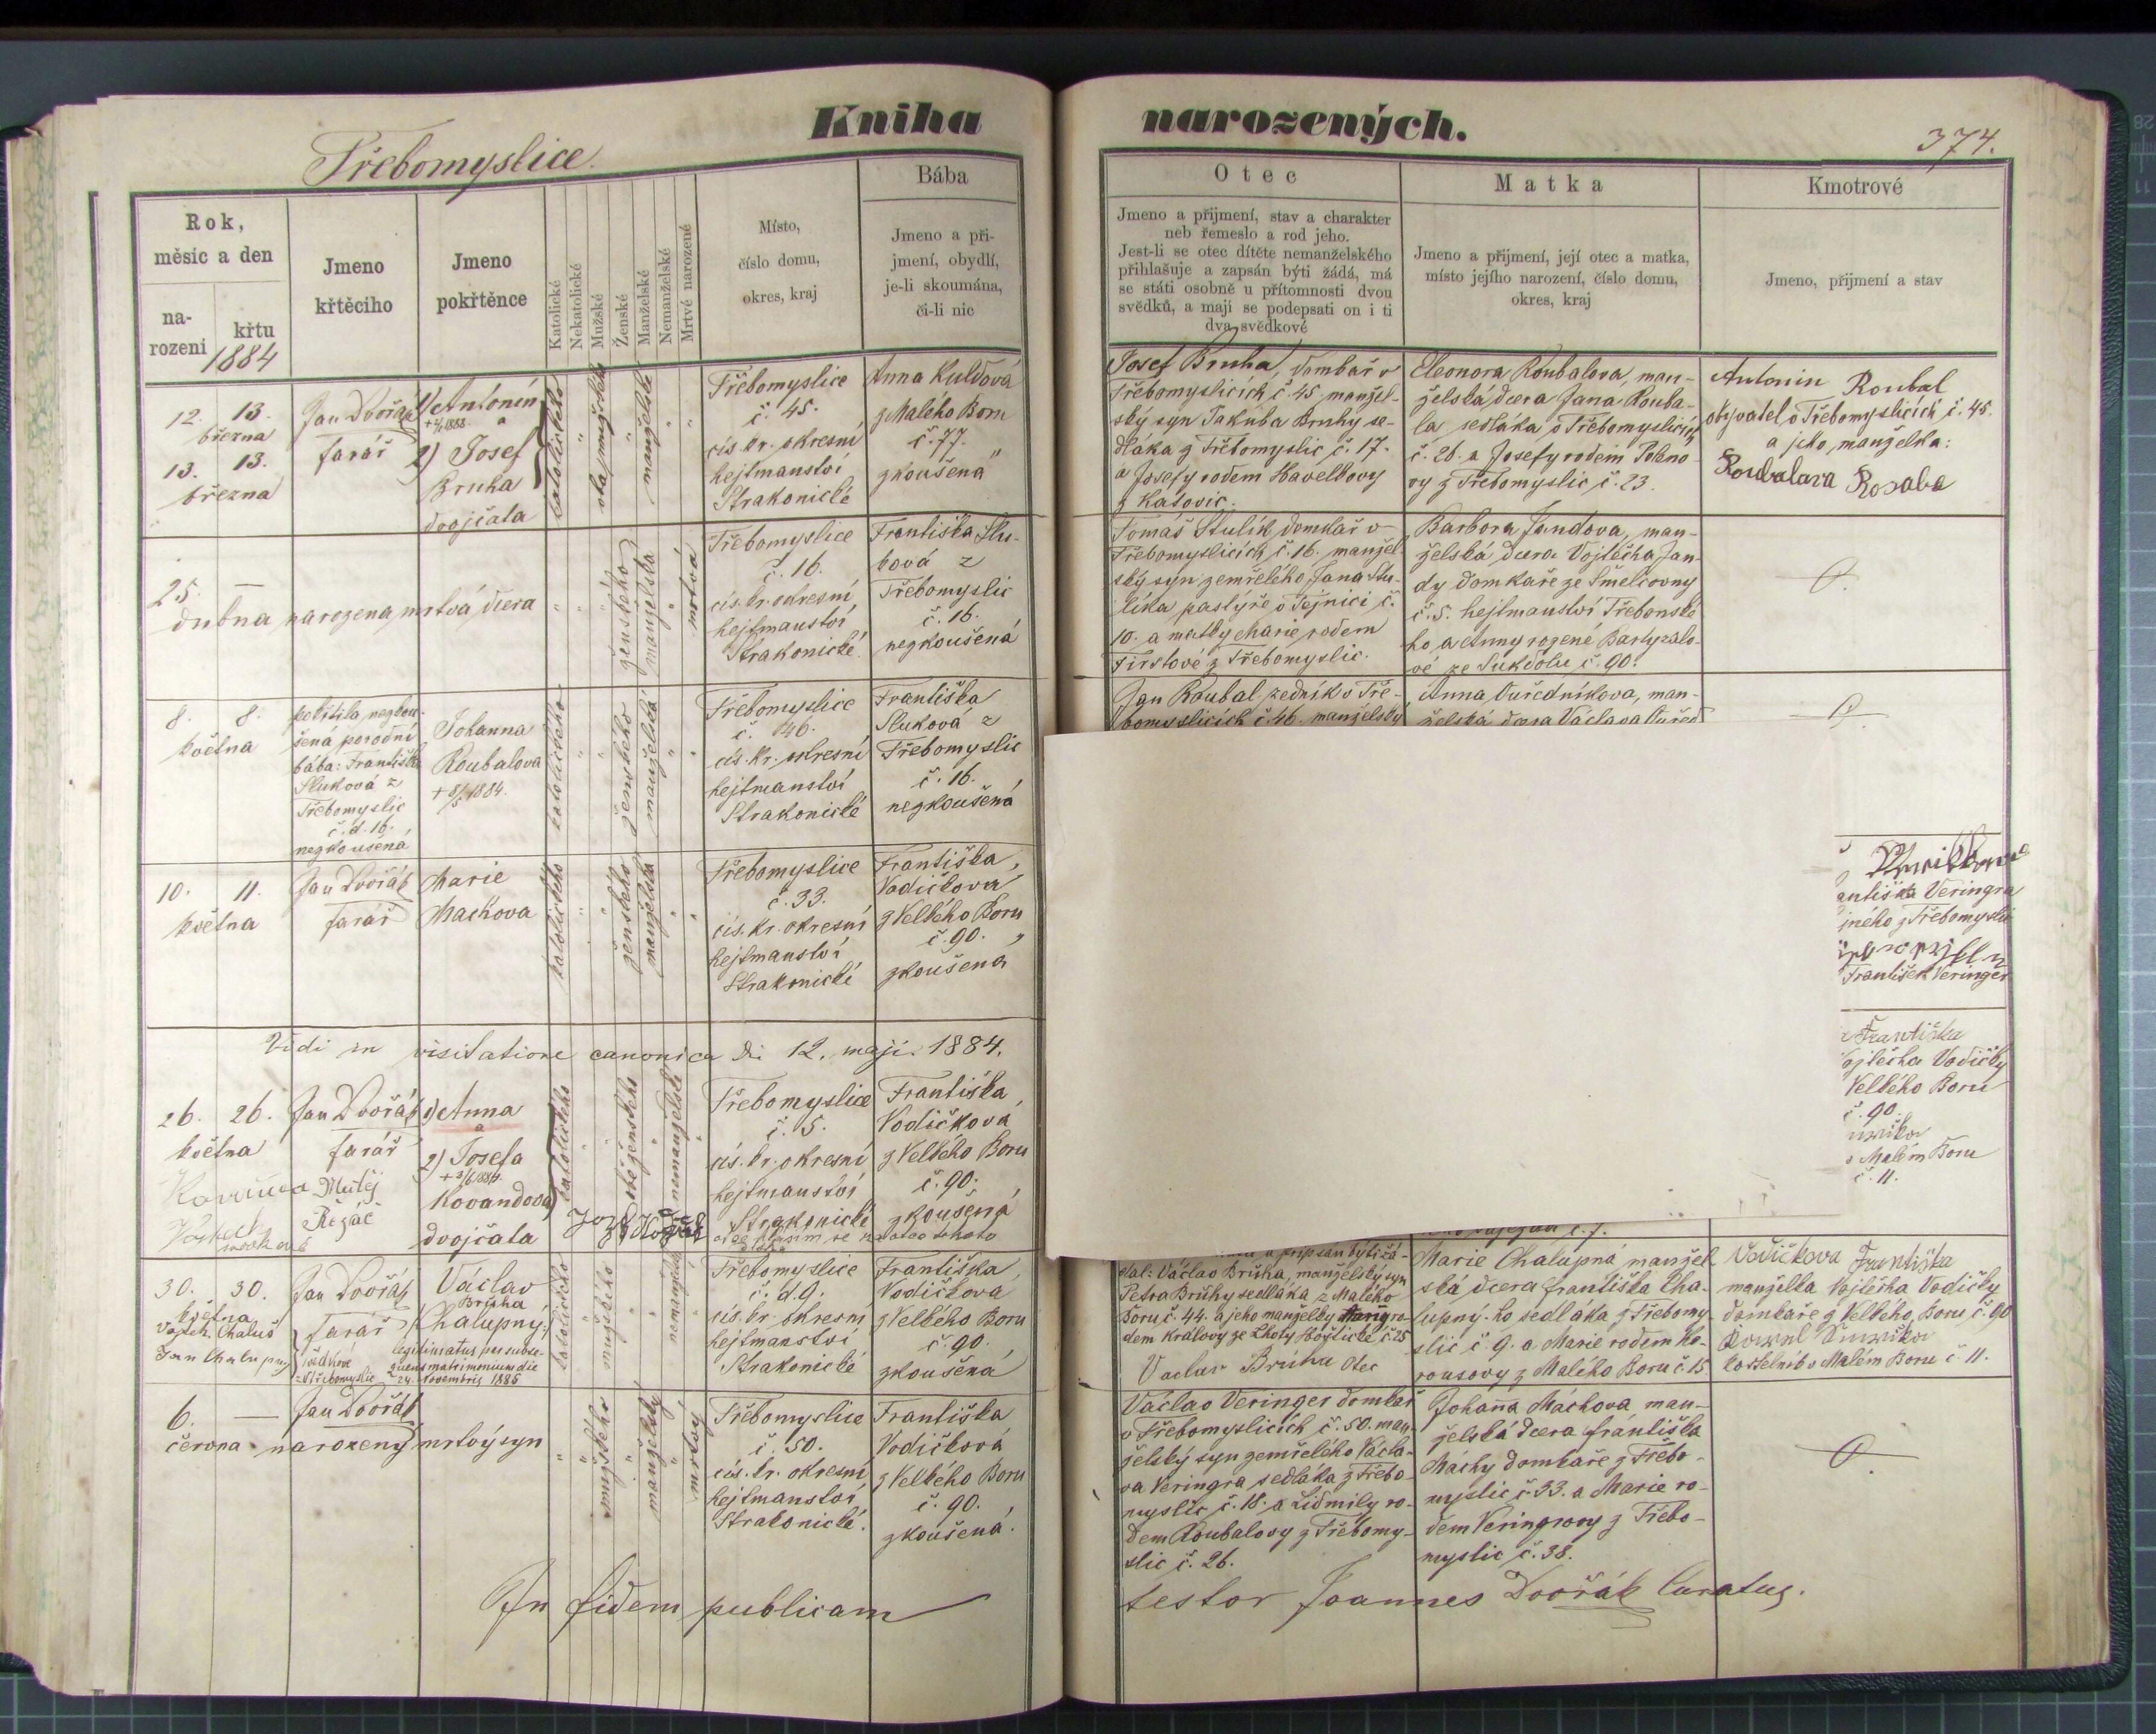 Kniha narozených.
Třebomyslice.
374.
Rok,
měsíc a den
na-
rozeni
křtu
1884
Jmeno
křtěciho
Jmeno
pokřtěnce
Katolické
Nekatolické
Mužské
Ženské
Manželské
Nemanželské
Mrtvé narozené
Místo,
číslo domu,
okres, kraj
Bába
Jmeno a při-
jmení, obydlí,
je-li skoumána,
či-li nic
Otec
Jmeno a přijmení, stav a charakter
neb řemeslo a rod jeho.
Jest-li se otec dítěte nemanželského
přihlašuje a zapsán býti žádá, má
se státi osobně u přítomnosti dvou
svědků, a mají se podepsati on i ti
dva svědkové
Matka
Jmeno a přijmení, její otec a matka,
místo jejího narození, číslo domu,
okres, kraj
Kmotrové
Jmeno, přijmení a stav
12. 13.
března
13. 13.
března
Jan Dvořák
farář
1) Antonín
a
2) Josef
Bruha
dvojčata
katolického
oba mužského
manželské
Třebomyslice
č. 45.
cís. kr. okresní
hejtmanství
Strakonické
Anna Kuldová
z Malého Boru
č. 77.
zkoušená
Josef Bruha, domkař v
Třebomyslicích č. 45 manžel-
ský syn Jakuba Bruhy se-
dláka z Třebomyslic č. 17.
a Josefy rodem Havelkovy
z Katovic.
Eleonora Roubalova, man-
želská dcera Jana Rouba-
la sedláka v Třebomyslicích
č. 26. a Josefy rodem
z Třebomyslic č. 23.
Antonin Roubal
obyvatel v Třebomyslicích č. 45.
a jeho manželka:
Roubalova Rosalia
25. —
dubna
narozena mrtvá dcera
ženského
manželská
mrtvá
Třebomyslice
č. 16.
cís. kr. okresní
hejtmanství
Strakonické
Františka Slu-
ková z
Třebomyslic
č. 16.
nezkoušená
Tomáš Stulík domkař v
Třebomyslicích č. 16. manžel-
ský syn zemřelého Jana Stu-
líka pastýře v Týnici č.
10. a matky Marie rodem
Firstové z Třebomyslic.
Barbora Jandova, man-
želská dcera Vojtěcha Jan-
dy domkaře ze Šmelcovny
č. 5. hejtmanství Třebonské
ho a Anny rozené Bartyzalo-
vé ze Sukdolu č. 90.
8. 8.
května
pokřtila nezkou-
šená porodní
bába: Františka
Sluková z
Třebomyslic
č. d. 16.
nezkoušená
Johanna
Roubalova
+ 8/5 1884.
katolického
ženského
manželská
Třebomyslice
č. 46.
cís. kr. okresní
hejtmanství
Strakonické
Františka
Sluková z
Třebomyslic
č. 16.
nezkoušená
Jan Roubal, zedník v Tře-
bomyslicích č. 46. manželský
Anna Ouředníkova, man-
želská dcera Václava Ouřed
10. 11.
května
Jan Dvořák
farář
Marie
Machova
katolického
ženského
manželská
Třebomyslice
č. 33.
cís. kr. okresní
hejtmanství
Strakonické
Františka
Vodičková
z Velkého Boru
č. 90.
zkoušena
antiška Veringra
jného z Třebomyslic
František Veringer
Vidi in visitatione canonica die 12. maji. 1884.
26. 26.
května
Jan Dvořák
farář
Matěj
Řezáč
1) Anna
a
2) Josefa
Kovandova
dvojčata
katolického
obě ženského
nemanželské
Třebomyslice
č. 5.
cís. kr. okresní
hejtmanství
Strakonické
Františka
Vodičková
z Velkého Boru
č. 90.
zkoušená
Františka
ojtěcha Vodičky
Velkého Boru
č. 90.
v Malém Boru
č. 11.
30. 30.
května
Vojtěch Chaluš
Jan Chalupný
svědkové
z Třebomyslic
Jan Dvořák
farář
Václav
Bruha
Chalupný
legitimatus per subse-
quens matrimonium die
24. Novembris 1885
katolického
mužského
nemanželský
Třebomyslice
č. d. 9.
cís. kr. okresní
hejtmanství
Strakonické
Františka
Vodičková
z Velkého Boru
č. 90.
zkoušená
a připsán býti žá-
dal: Václav Brůha, manželský syn
Petra Brůhy sedláka z Malého
Boru č. 44. a jeho manželky Marie ro-
dem Královy ze Lhoty Kozčické č. 25
Vaclav Brůha otec
Marie Chalupná manžel-
ská dcera Františka Cha-
lupný-ho sedláka z Třebomy-
slic č. 9. a Marie rodem Ko-
rousovy z Malého Boru č. 15.
Vodičkova Františka
manželka Vojtěcha Vodičky
domkaře z Velkého Boru č. 90
kostelník v Malém Boru č. 11.
6. —
června
Jan Dvořák
narozený mrtvý syn
mužského
manželský
mrtvý
Třebomyslice
č. 50.
cís. kr. okresní
hejtmanství
Strakonické.
Františka
Vodičková
z Velkého Boru
č. 90.
zkoušená.
Václav Veringer domkař
v Třebomyslicích č. 50. man-
želský syn zemřelého Václa-
va Veringra sedláka z Třebo-
myslic č. 18. a Lidmily ro-
dem Roubalovy z Třebomy-
slic č. 26.
Johanna Máchova man-
želská dcera Františka
Máchy domkaře z Třebo-
myslic č. 33. a Marie ro-
dem Veringrovy z Třebo-
myslic č. 38.
In fidem publicam testor Joannes Dvořák Curatus.